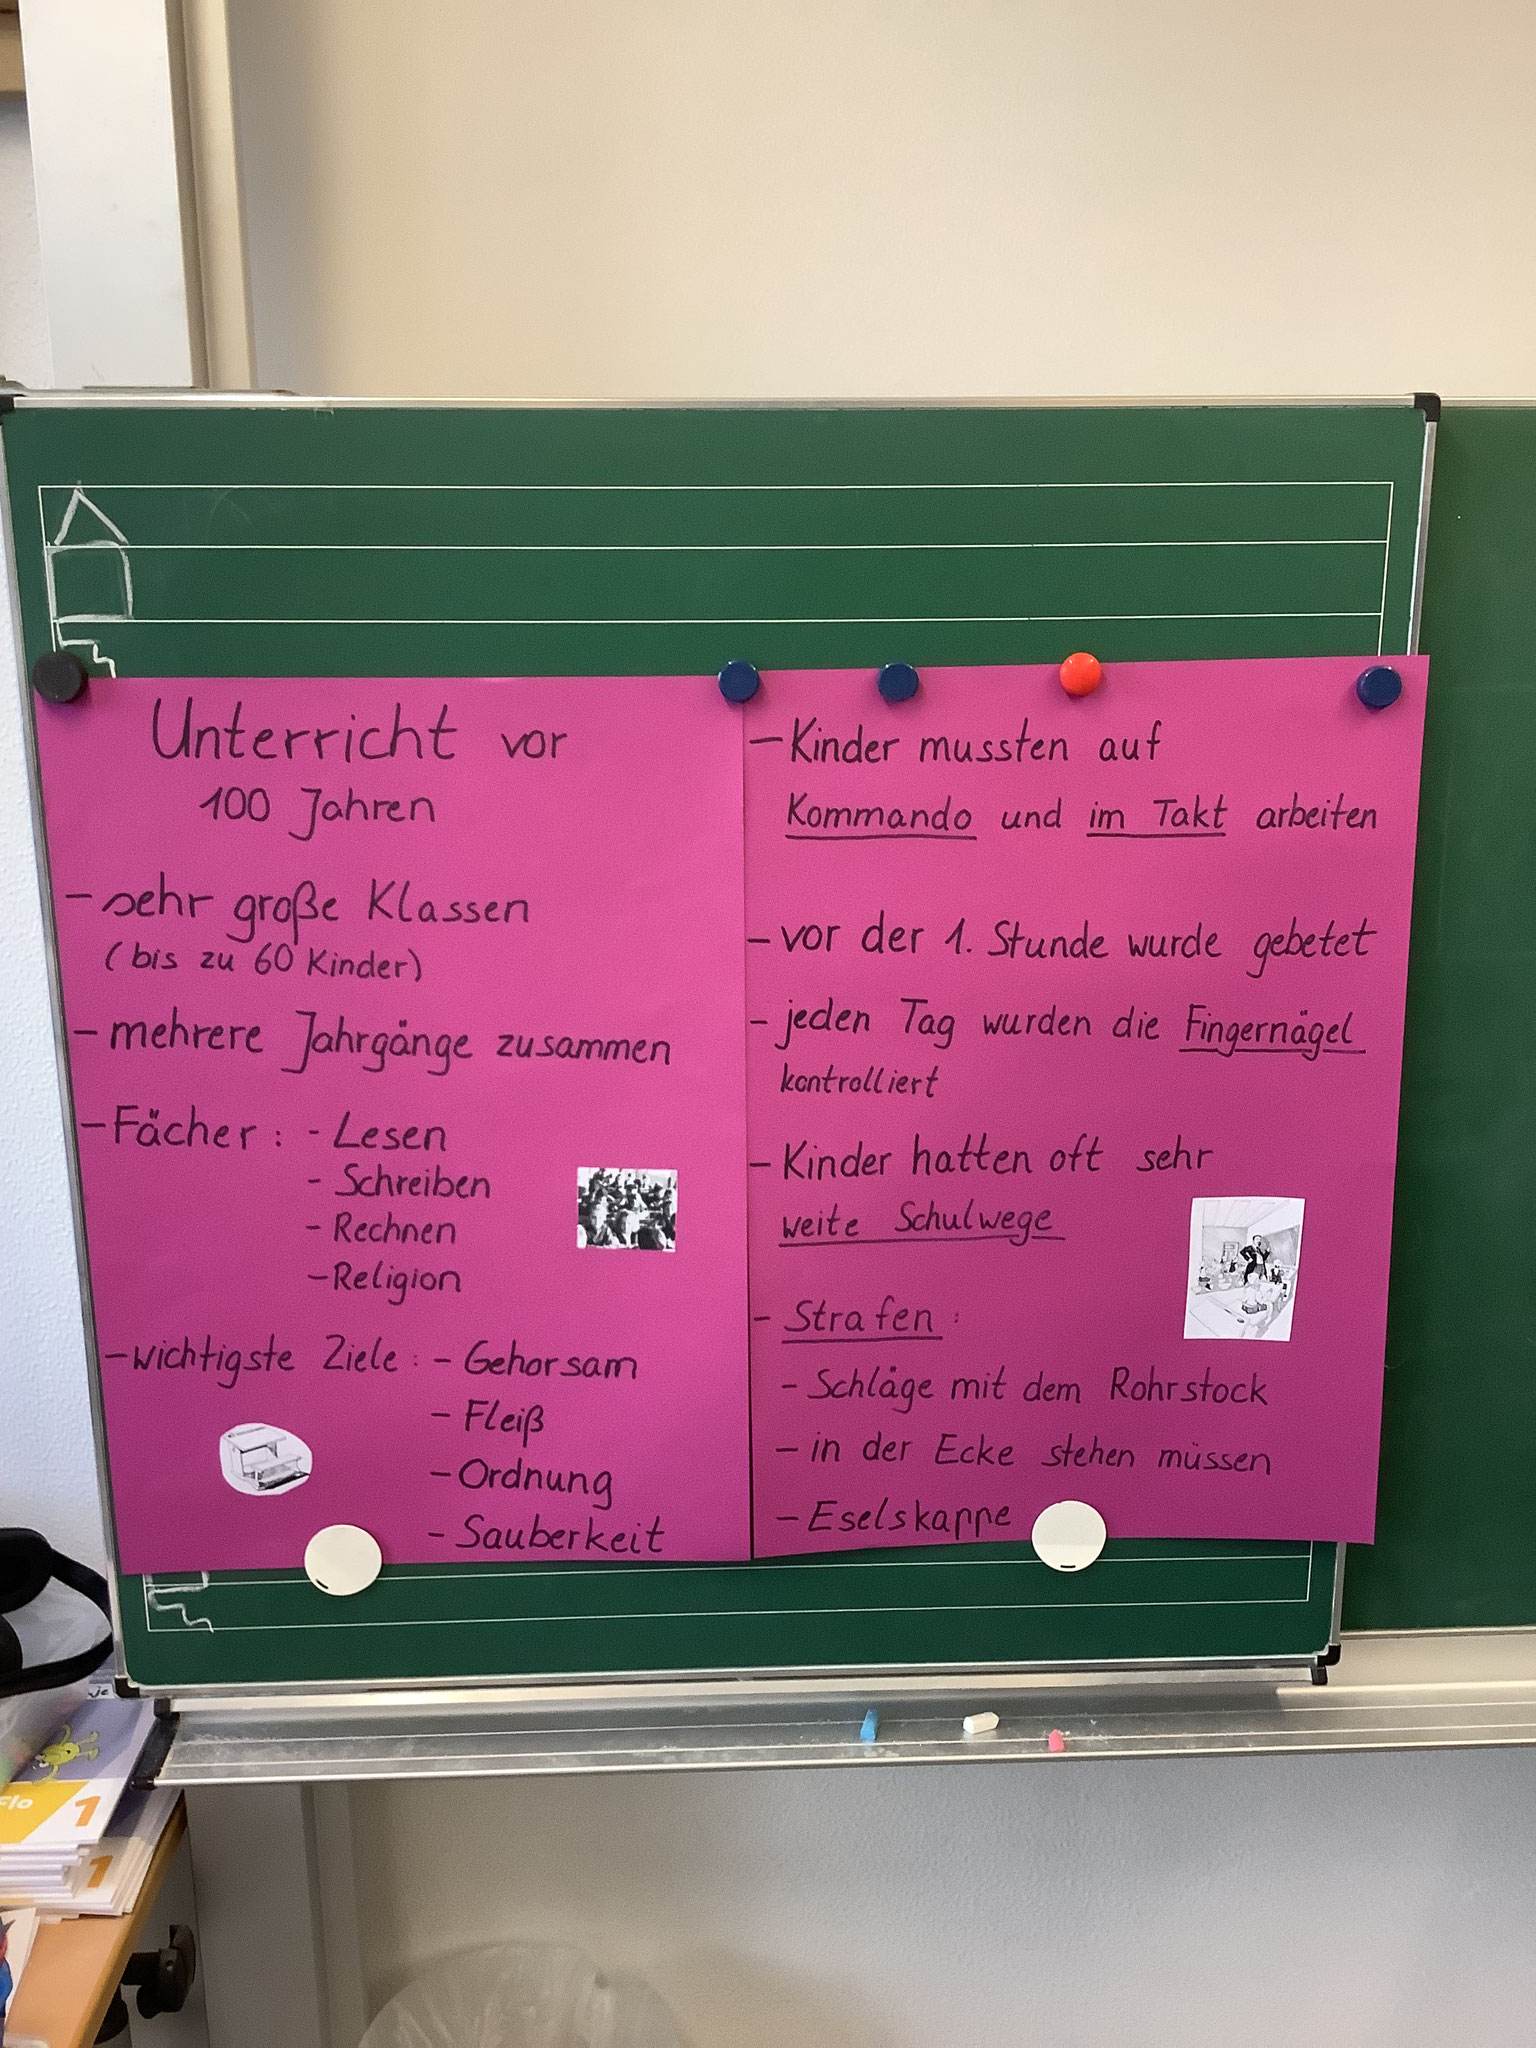 Unterricht vor
100 Jahren
- sehr große Klassen
(bis zu 60 Kinder)
- mehrere Jahrgänge zusammen
- Fächer: - Lesen
- Schreiben
- Rechnen
- Religion
- wichtigste Ziele: - Gehorsam
- Fleiß
- Ordnung
- Sauberkeit
- Kinder mussten auf
Kommando und im Takt arbeiten
- vor der 1. Stunde wurde gebetet
- jeden Tag wurden die Fingernägel
kontrolliert
- Kinder hatten oft sehr
weite Schulwege
- Strafen:
- Schläge mit dem Rohrstock
- in der Ecke stehen müssen
- Eselskappe
Flo 1
1